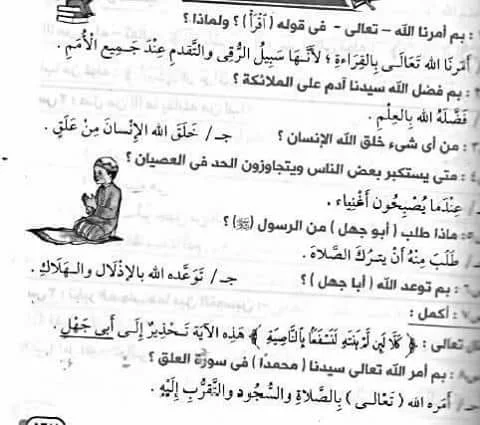 : بم أمرنا الله - تعالى - فى قوله ( اقرأ ) ؟ ولماذا ؟
/ أَمَرَنَا الله تَعَالَـى بِالقِرَاءَةِ ؛ لأَنَّـهَا سَبِيلُ الرُّقِى والتَّقَدمِ عِنْدَ جَمِيعِ الأُمَمِ .
: بم فضل الله سيدنا آدم على الملائكة ؟
/ فَضَّلَهُ الله بِالعِلْمِ .
٣ : من أى شىء خلق الله الإنسان ؟ جـ/ خَلَقَ الله الإِنْسَانَ مِنْ عَلَقٍ .
٤ : متى يستكبر بعض الناس ويتجاوزون الحد فى العصيان ؟
/ عِنْدَمَا يُصْبِحُونَ أَغْنِيَاء .
٥: ماذا طلب ( أبو جهل ) من الرسول (ﷺ) ؟
جـ/ طَلَبَ مِنْهُ أَنْ يـتـرُكَ الصَّلاةَ .
٦ : بم توعد الله ( أبا جهل ) ؟ جـ/ تَوَعَّدَه الله بالإِذْلَالِ والـهَلَاكِ .
٧ : أكمل :
قال تعالى : ﴿ كَلَّا لَئِن لَّمْ يَنتَهِ لَنَسْفَعًا بِالنَّاصِيَةِ ﴾ هَذِه الآيَة تَـحْذِيرٌ إِلَـى أَبِى جَهْلٍ .
٨ : بم أمر الله تعالى سيدنا ( محمدًا ) فى سورة العلق ؟
جـ/ أَمَرَه الله ( تَعَالَـى ) بِالصَّلاةِ والسُّجُودِ والتَّقرُّبِ إِلَيْهِ .